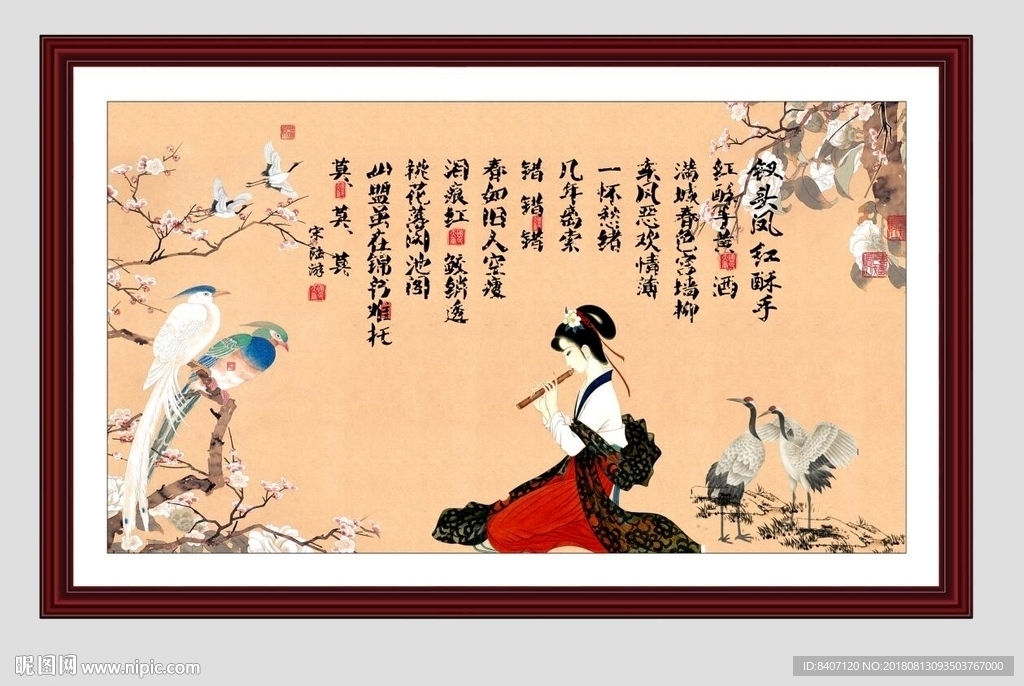 钗头凤 红酥手
红酥手 黄 酒
满城春色宫墙柳
东风恶欢情薄
一怀愁绪
几年离索
错 错 错
春如旧人空瘦
泪痕红 鲛绡透
桃花落闲池阁
山盟虽在锦书难托
莫 莫 莫
宋陆游
昵图网 www.nipic.com
ID:8407120 NO:20180813093503767000